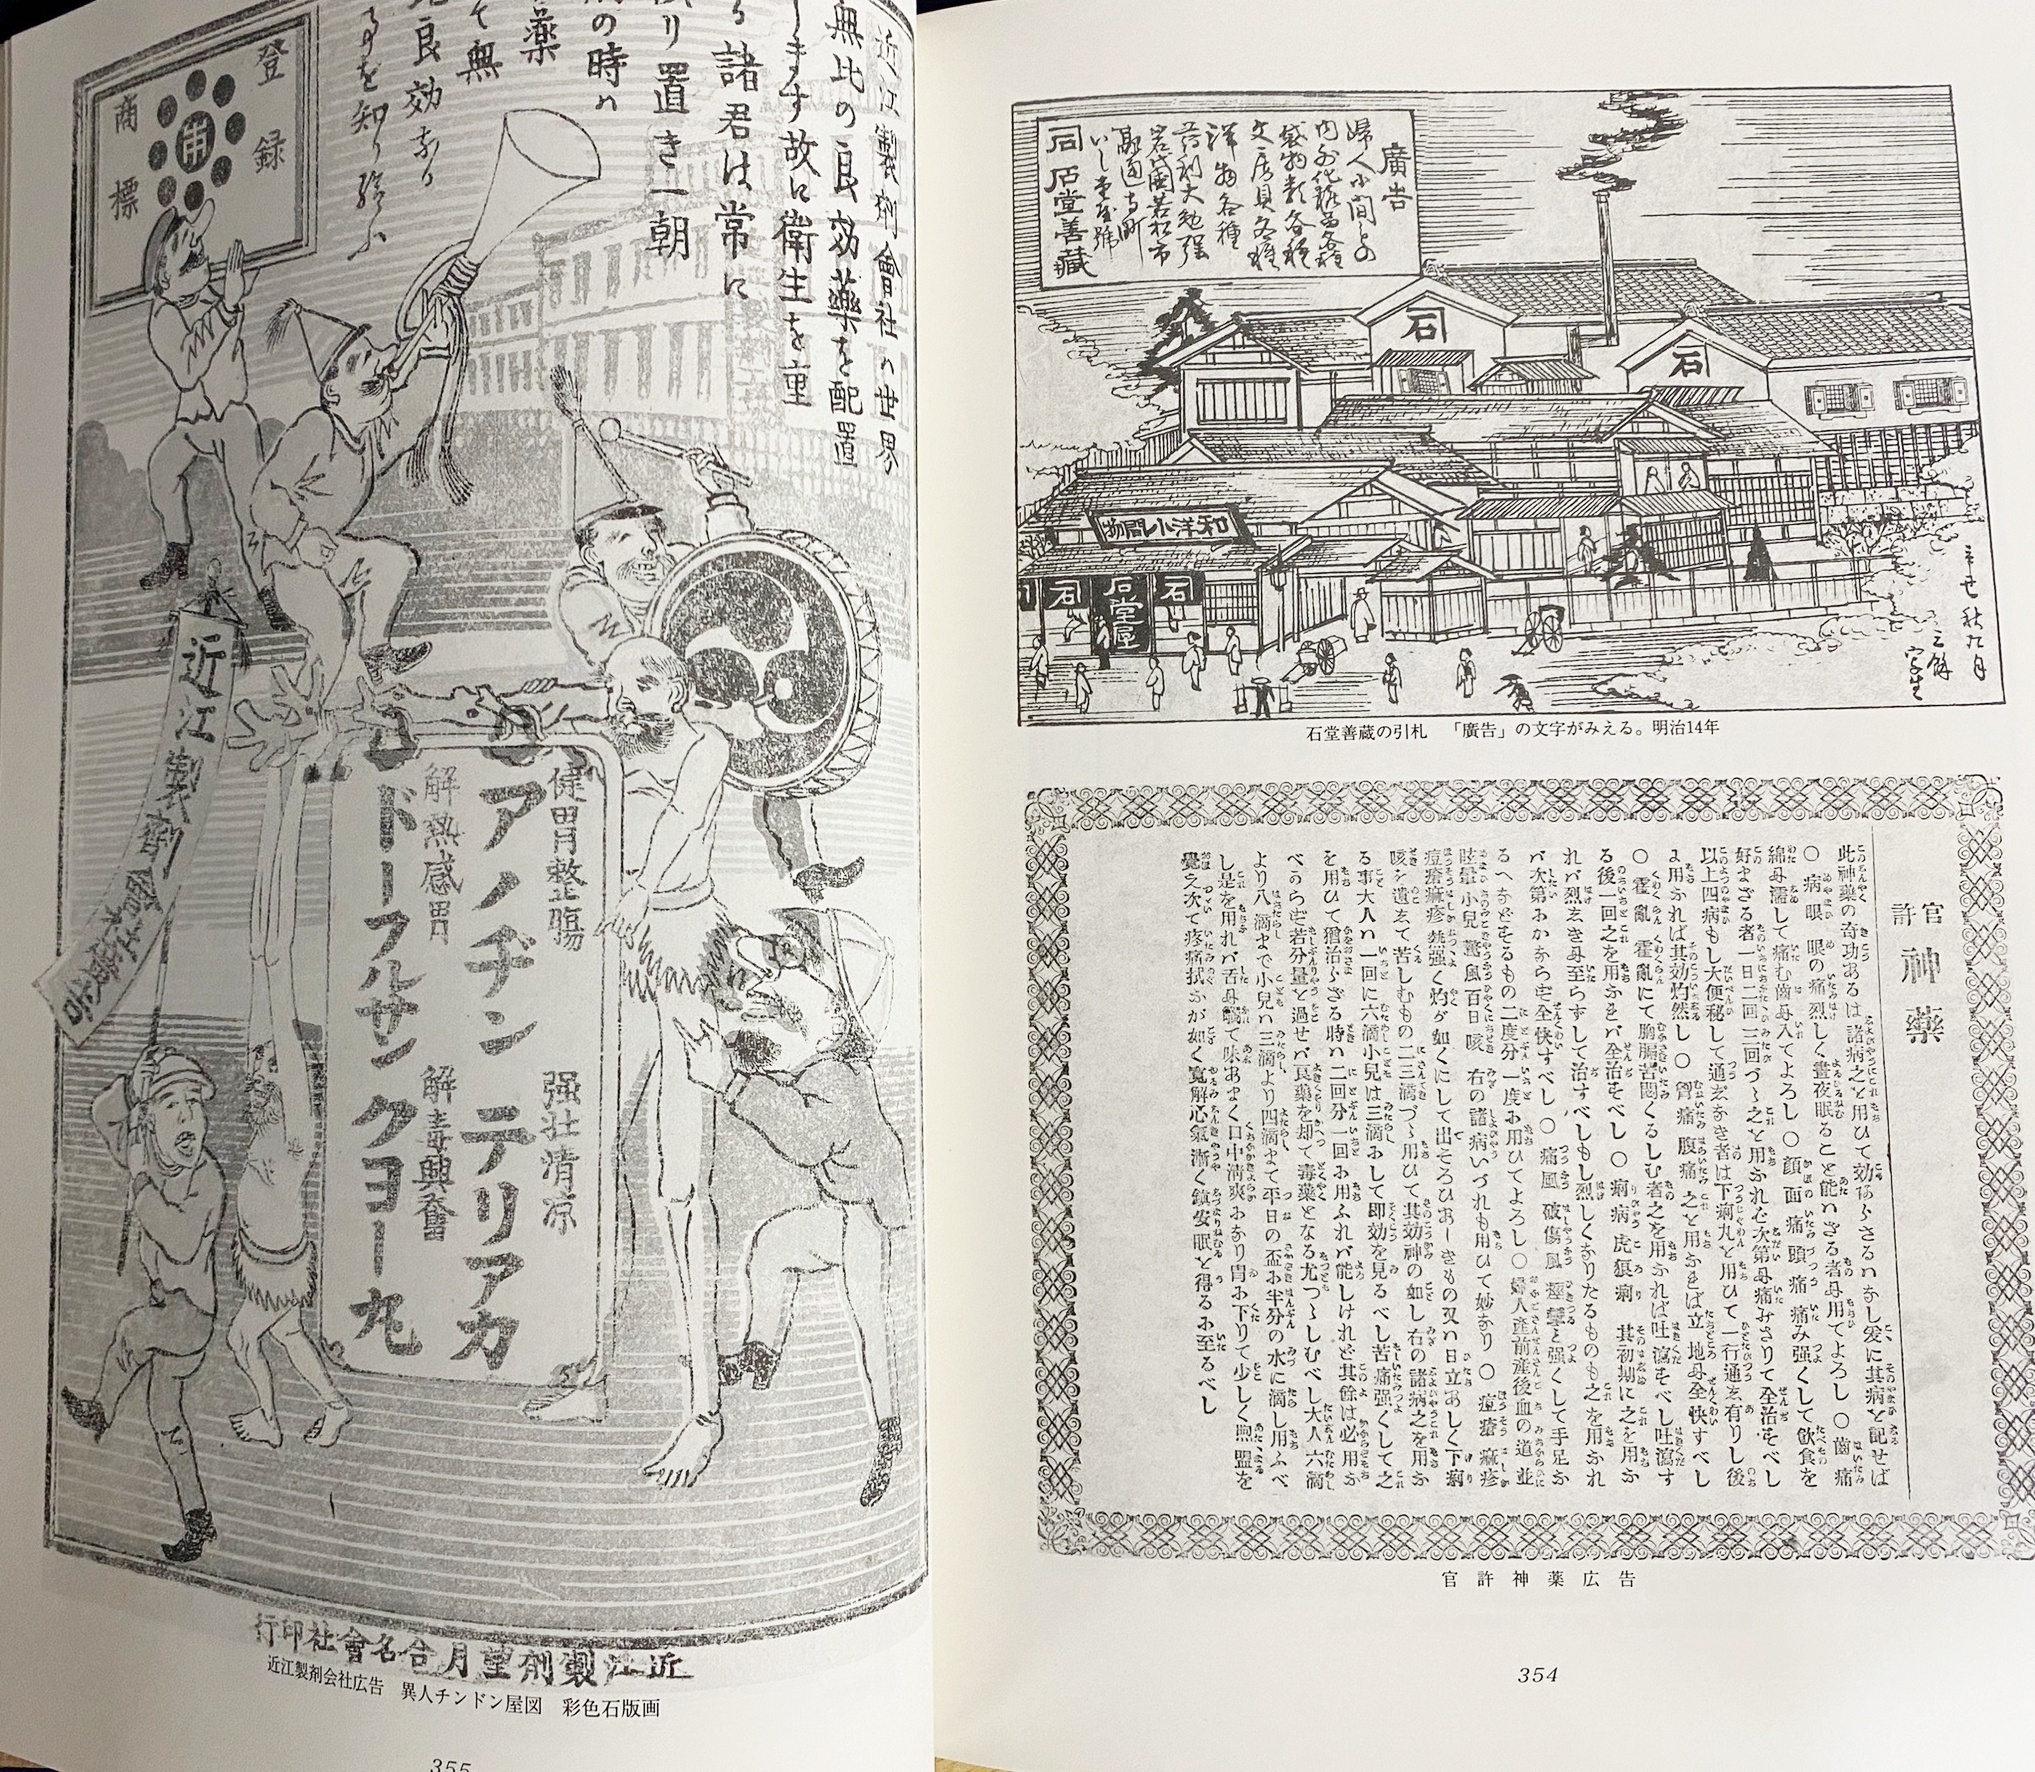 廣告
婦人小間もの
内外化粧品各種
袋物数各種
文房具各種
洋物各種
岩代國若松市
石堂善藏
和洋小間物
石
石
石
石堂屋
石
辛巳秋九月
石堂善蔵の引札　「廣告」の文字がみえる。明治14年
官許
神藥
此神藥の奇功あるは諸病之を用ひて効あらさるハなし爰に其病を記せば
○病眼　眼の痛烈しく晝夜眠ること能ハざる者に用てよろし○齒痛
綿に濡して痛む齒に入てよろし○顔面痛頭痛　痛み強くして飲食を
好まざる者一日二回三回づゝ之を用ふれば次第に痛みさりて全治すべし
以上四病もし大便秘して通ぜざる者は下痢丸を用ひて一行通じ有りし後
に用ふれば其効灼然し○霍亂　霍亂にて胸膈苦悶くるしむ者之を用ふれば吐瀉すべし吐瀉す
る後一回之を用ふれバ全治すべし○胃痛　腹痛　之を用ふれば立地に全快すべし
○痢病虎狼痢　其初期に之を用ふ
れバ烈しきに至らずして治すべしもし烈しくなりたるものも之を用ふれ
バ次第におから全快すべし○痛風　破傷風　痙攣　強くして手足ふ
るへなどするもの二度分一度に用ひてよろし○婦人産前産後血の道並
眩暈小兒驚風百日咳　右の諸病いづれも用ひて妙なり○痘瘡　痲疹
痘瘡痲疹熱强く灼が如くにして出そろひあしきもの又ハ日立あしく下痢
咳を遺して苦しむもの二三滴づゝ用ひて其効神の如し右の諸病之を用ふ
る事大人ハ一回に六滴小兒は三滴にして即効を見るべし苦痛强くして之
を用ひて猶治らざる時ハ二回分一回に用ふれバ能しけれど其餘は必用ふ
べからず若分量を過せバ良藥も却て毒藥となる尤つゝしむべし大人六滴
より八滴まで小兒ハ三滴より四滴まて平日の盃に半分の水に滴し用ふべ
し是を用れバ舌に觸て味あまく口中清爽になり胃に下りて少しく煦盟を
覺え次て疼痛拭ふが如く寛解心氣漸く鎮安眠を得るに至るべし
官許神薬広告
354
近江製劑會社ハ世界
無比の良効藥を配置
します故に衛生を重
諸君は常に
置き一朝
の時ハ
藥
て無
良効あり
を知り給ふ
登録
商標
近江製劑會社
健胃整膓
强壮清凉
アノヂンテリアカ
解熱感冒
解毒興奮
ドーフルサンクヨー丸
近江製劑望月合名會社印行
近江製剤会社広告　異人チンドン屋図　彩色石版画
355